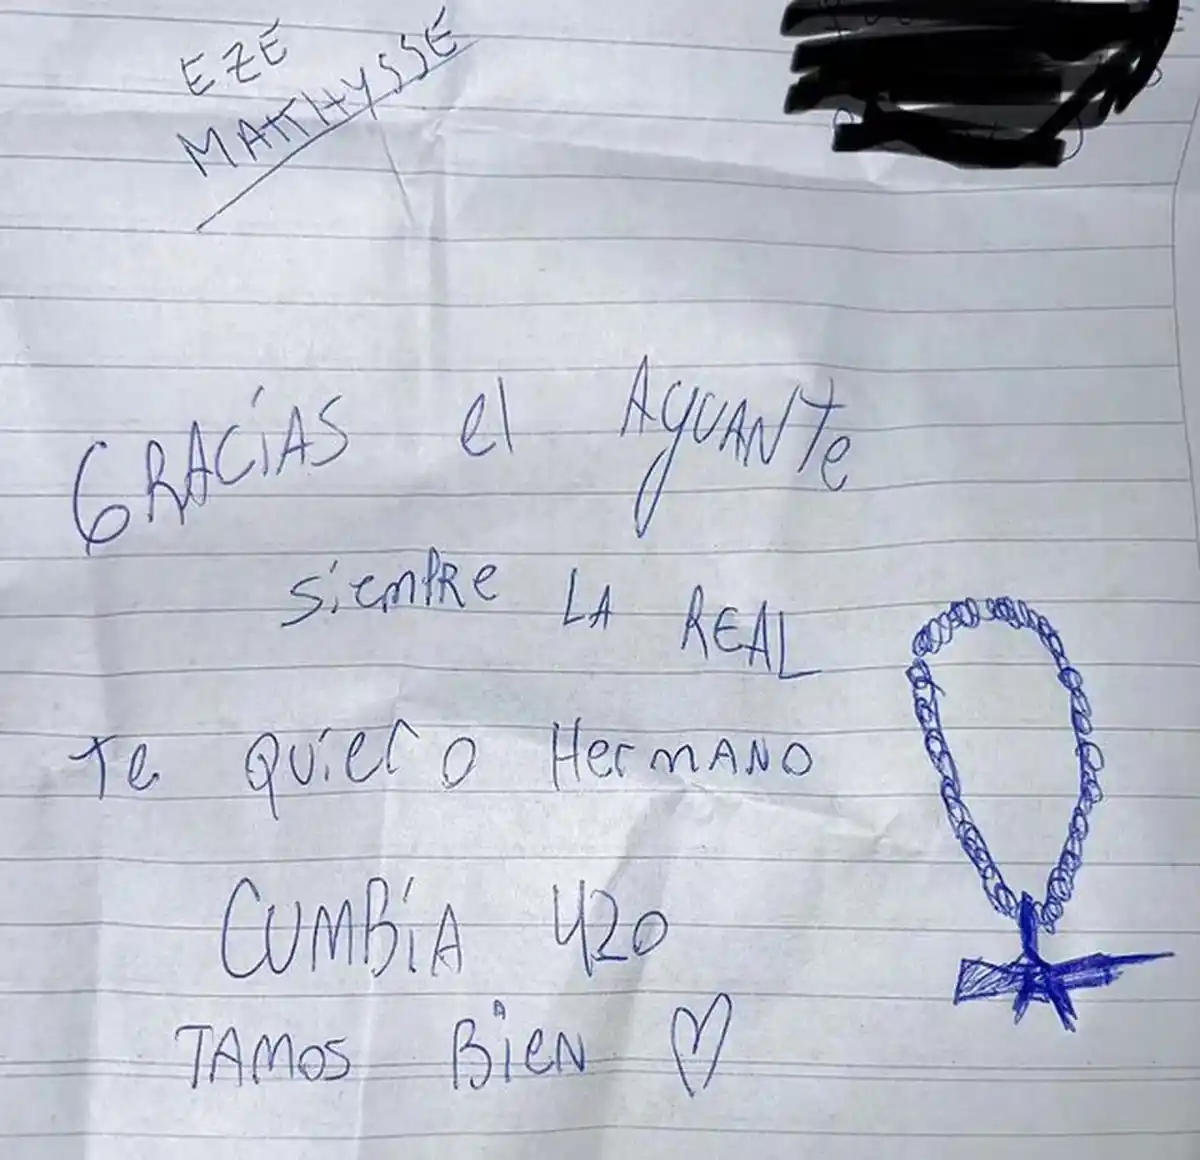 EZE
MATTHYSSE
GRACíAS el AGUANTe
siemPRe LA REAL
Te QUíeRO HerMANO
CUMBíA 420
TAMOS BíEN